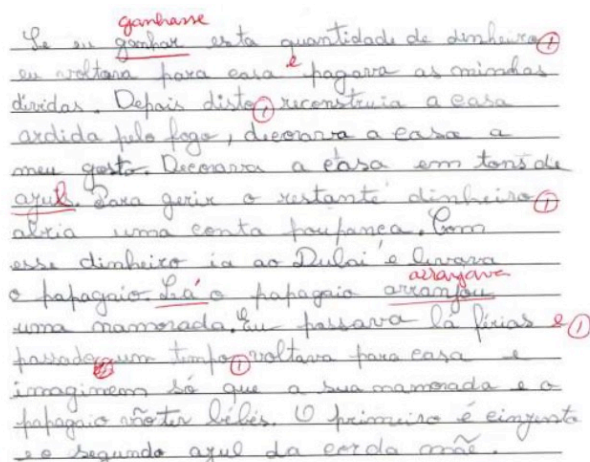 ganhasse
Se eu ganhar esta quantidade de dinheiro,
eu voltava para casa e pagava as minhas
dívidas. Depois disto, reconstruia a casa
ardida pelo fogo, decorava a casa a
meu gosto. Decorava a casa em tons de
azul. Para gerir o restante dinheiro,
abria uma conta poupança. Com
esse dinheiro ia ao Dubai e levava
arranjava
o papagaio. Lá o papagaio arranjou
uma namorada. Eu passava lá férias e,
passado um tempo, voltava para casa e
imaginem só que a sua namorada e o
papagaio vão ter bébés. O primeiro é cinzento
e o segundo azul da cor da mãe.